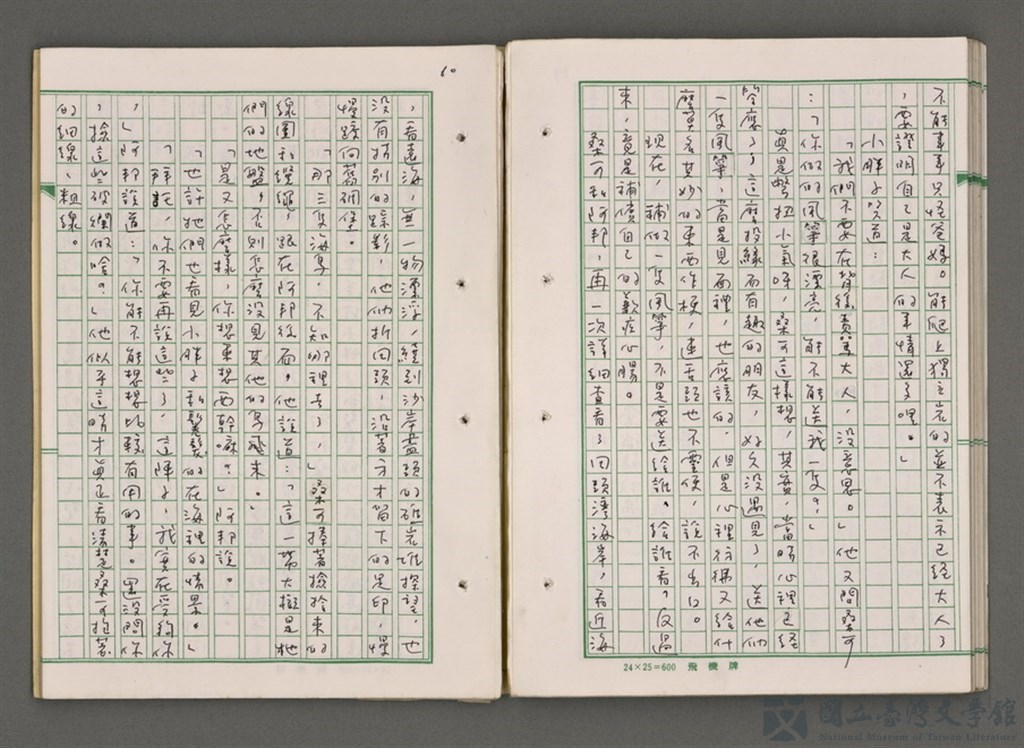 不能事事只怪爸媽。能爬上獨立岩的並不表示已經大人了
，要證明自己是大人的事情還多哩。」
小胖子笑道：
「我們不要在背後責罵大人，沒意思。」他又問桑可
：「你做的風箏很漂亮，能不能送我一隻？」
真是彆扭小氣呀，桑可這樣想，其實，當時心裡已經
答應了，這麼投緣而有趣的朋友，好久沒遇見了，送他們
一隻風箏，當是見面禮，也應該的。但是心裡彷彿又給什
麼莫名其妙的東西作梗，連舌頭也不靈便，說不出口。
現在，補做一隻風箏，不是要送給誰。給誰看？反過
來，竟是補償自己的歉疚心腸。
桑可和阿邦，再一次詳細查看了回頭灣海岸，看近海
24×25=600 飛機牌
60
，看遠海，無一物漂浮，繞到沙岸盡頭的礁岩堆探望，也
沒有特別的蹤影，他們折回頭，沿著方才留下的足印，慢
慢踱向舊碉堡。
「那三隻海鳥，不知哪裡去了，」桑可捧著撿拾來的
線團和纜繩，跟在阿邦後面，他說道：「這一帶大概是牠
們的地盤，否則怎麼沒見其他的鳥飛來。
「是又怎麼樣，你想東想西幹嘛？」阿邦說。
「也許牠們也看見小胖子和鬈髮的在海裡的情景。」
「拜託，你不要再說這些了，這陣子，我實在受夠你
，」阿邦說道：「你能不能想想比較有用的事。還沒問你
，撿這些破爛做啥？」他似乎這時才真正看清楚桑可抱著
的細線、粗線。
國立臺灣文學館
National Museum of Taiwan Literature